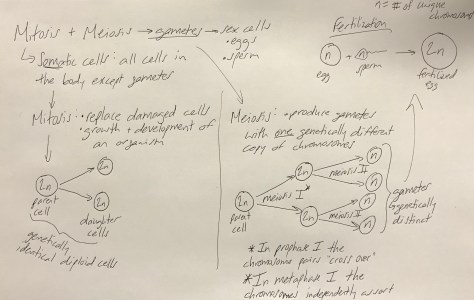 n = # of unique
chromosomes
Mitosis + Meiosis → gametes → sex cells
• eggs
• sperm
↳ Somatic cells: all cells in
the body except gametes
Fertilization
n + n → 2n
egg sperm fertilized
egg
Mitosis: • replace damaged cells
• growth + development of
an organism
2n
2n
2n
parent
cell
daughter
cells
genetically
identical diploid cells
Meiosis: • produce gametes
with one genetically different
copy of chromosomes
2n
parent
cell
meiosis I*
2n
2n
meiosis II
meiosis II
n
n
n
n
gametes
genetically
distinct
* In prophase I the
chromosome pairs "cross over"
* In metaphase I the
chromosomes independently assort